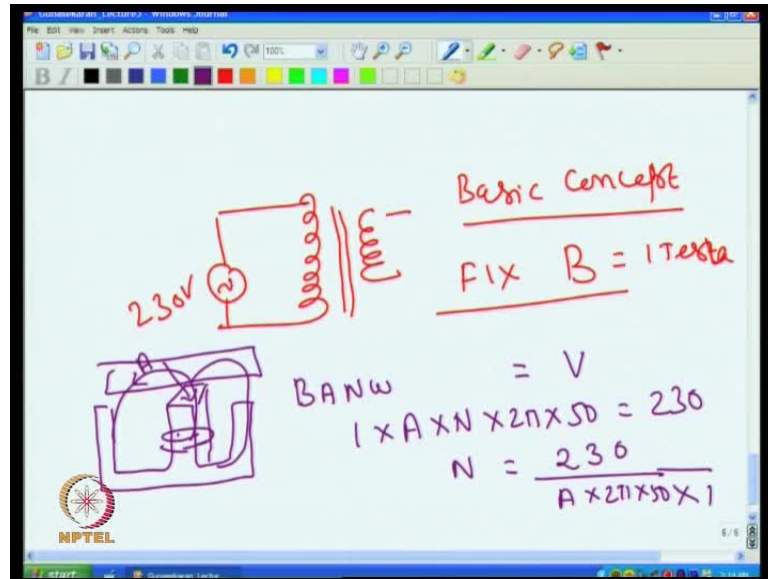 Gunasekaran_Lecture5 - Windows Journal
File Edit View Insert Actions Tools Help
100%
B I
Basic Concept
230V
FIX B = 1 Tesla
A
BANω = V
1 × A × N × 2π × 50 = 230
N = 230
A × 2π × 50 × 1
NPTEL
6/6
start
Gunasekaran_Lectur...